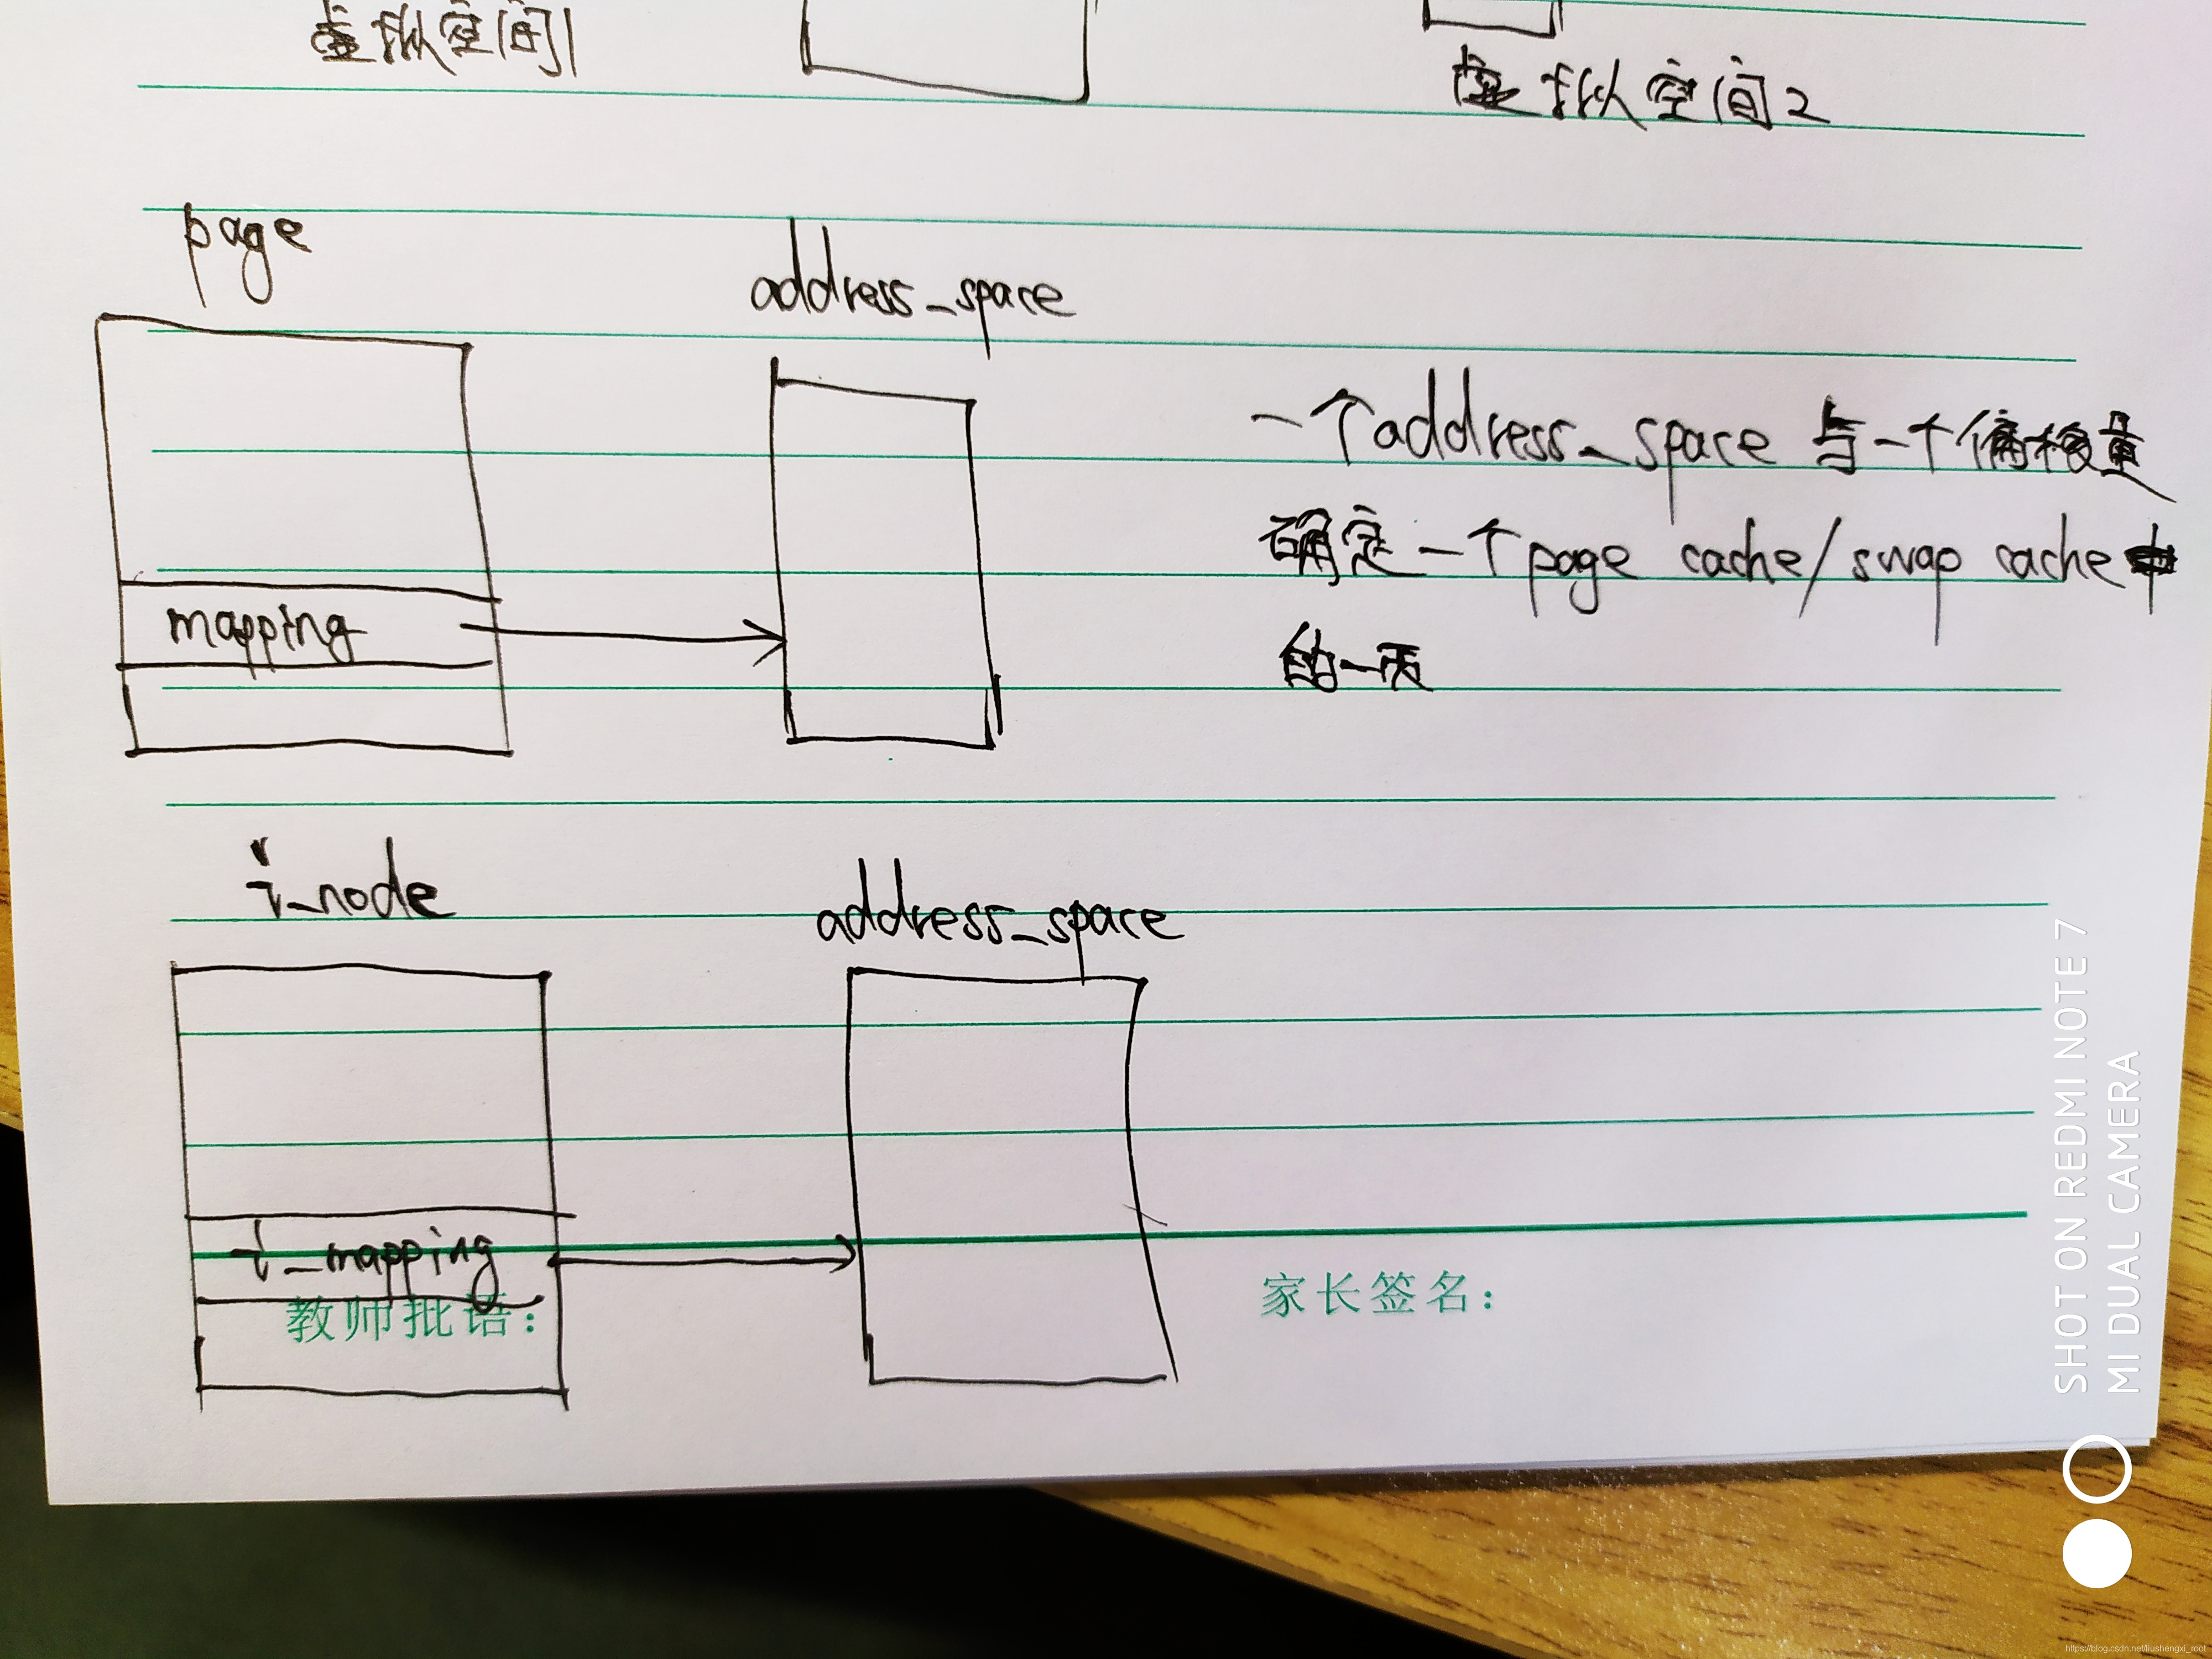 虚拟空间1
虚拟空间2
page
address_space
一个address_space 与一个偏移量
确定一个page cache/swap cache中
的一页
mapping
i_node
address_space
i_mapping
教师批语：
家长签名：
SHOT ON REDMI NOTE 7
MI DUAL CAMERA
https://blog.csdn.net/liushengxi_root